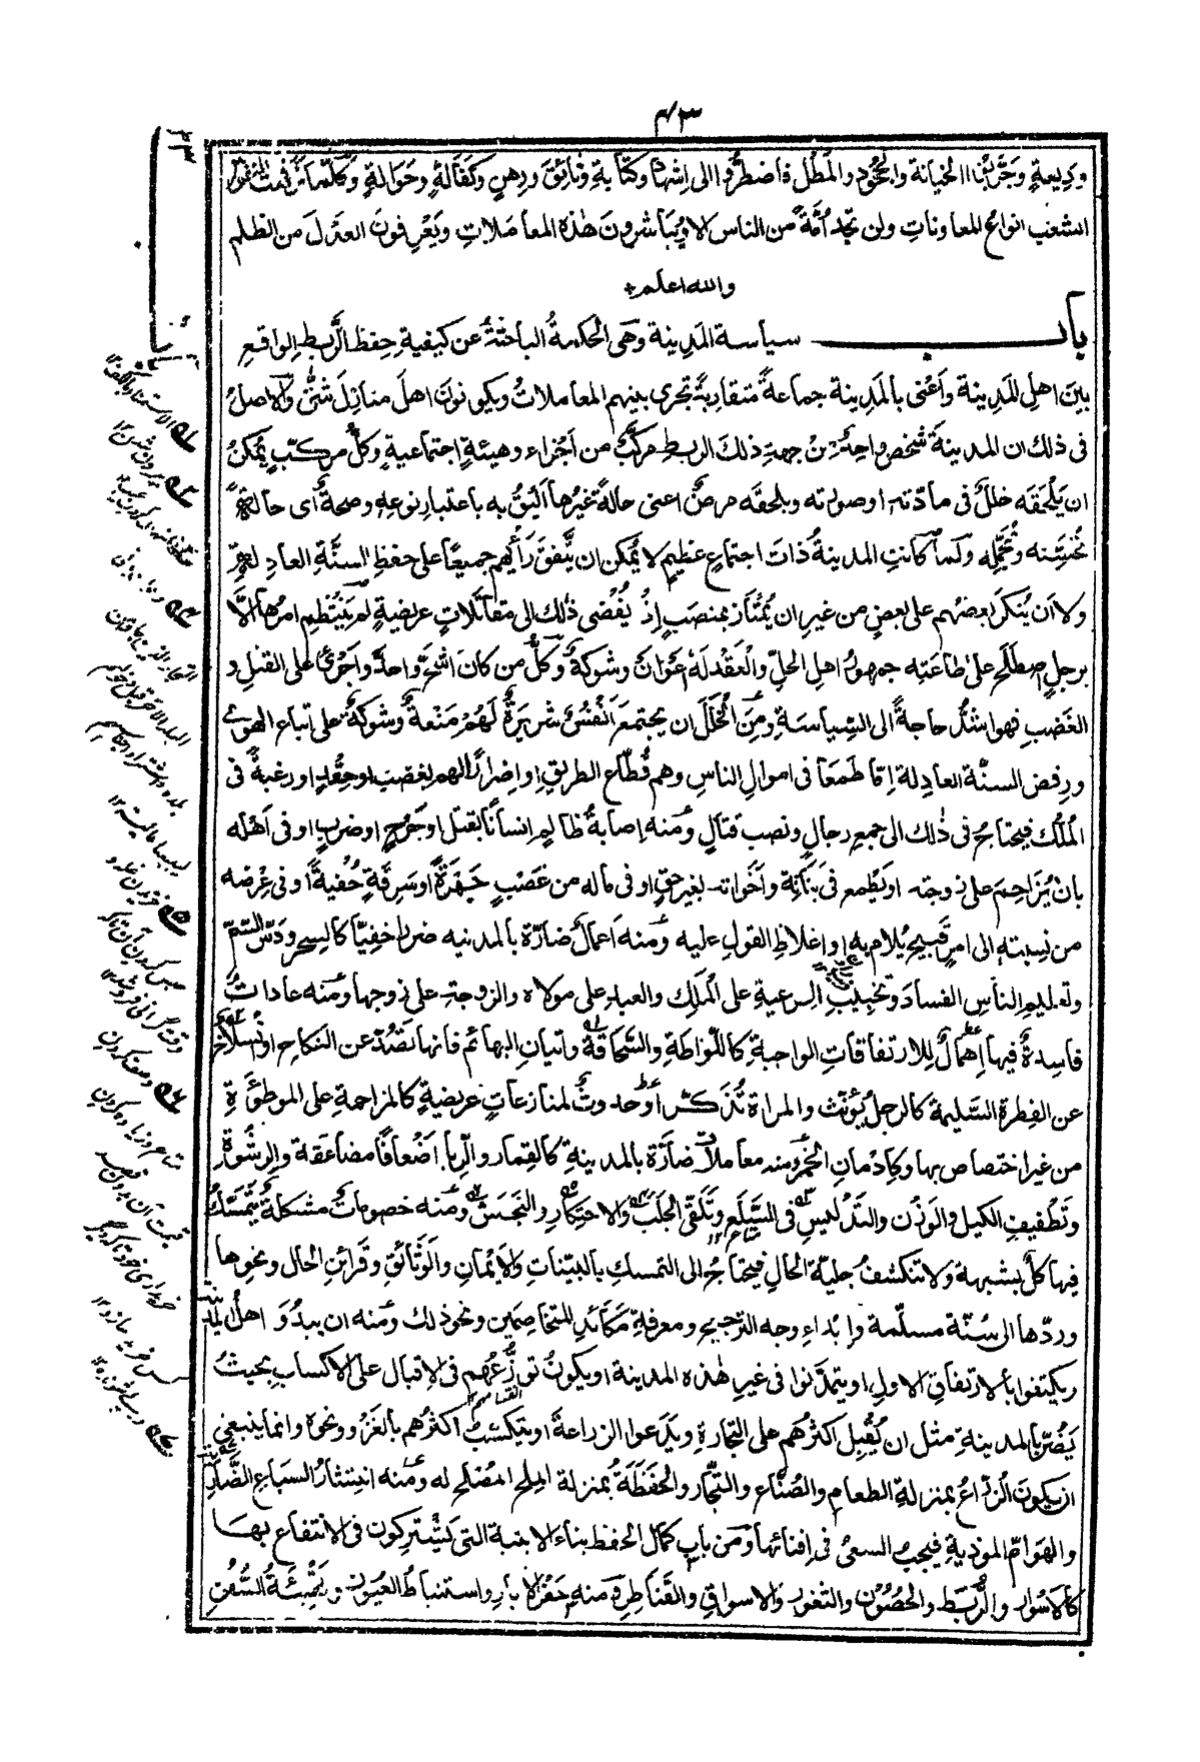 ٤٣
وديعةٍ وجَرَّبُوا الخيانة والجحُود والمَطْل فاضطرُّوا الى اشهادٍ وكتابةِ وثائقَ ورهنٍ وكفالةٍ وحَوالةٍ وكلّما ترفهت النفوس
انشعب انواعُ المعاونات ولن تجد أمَّةً من الناس الا ويُباشرون هذه المعاملات ويَعرِفون العدلَ من الظلم
والله اعلم
باب سياسة المدينة وهى الحكمةُ الباحثةُ عن كيفيةِ حِفظ الرَّبط الواقع
بينَ اهلِ المدينة وأَعنى بالمدينة جماعةً متقاربةً تجرى بينهم المعاملاتُ ويكونون اهلَ منازلَ شتّى والاصلُ
فى ذلك ان المدينةَ شخص واحدٌ من جهةِ ذلك الربط مركّبٌ من أجزاء وهيئةٍ اجتماعيةٍ وكلُّ مركّبٍ يُمكنُ
ان يَلحَقَه خللٌ فى مادّته او صورته ويلحقَه مرضٌ اعنى حالةً غيرُها اَليَقُ به باعتبارِ نوعهِ وصحةٌ أى حالةٌ
تُحسِّنه وتُجمِّله ولمّا كانت المدينةُ ذاتَ اجتماعٍ عظيمٍ لا يُمكن ان يتَّفقَ رَأيُهم جميعًا على حفظِ السنَّةِ العادلة
ولا ان يُنكرَ بعضُهم على بعضٍ من غيرِ ان يُمْتاز بمنصبٍ إذْ يُفضى ذلك الى مقاتلاتٍ عريضةٍ لم يَنتظم امرُها الّا
برجلٍ اصطلَح على طاعتِه جمهورُ اهلِ الحلّ والعَقْد لهُ أعوانٌ وشوكةٌ وكلُّ من كانَ اشحَّ واحدَّ واَجرَى على القتلِ و
الغضبِ فهو اشدُّ حاجةً الى السِّياسة ومنَ الخَلَل ان يجتمعَ اَنفُسٌ شريرةٌ لَهُم مَنعةٌ وشوكةٌ على اتباع الهوى
ورفضِ السنّة العادلة إمّا طَمَعًا فى اموالِ الناسِ وهم قُطّاع الطريقِ او اِضرارًا لهم بغضبٍ او حِقْدٍ او رغبةً فى
المُلك فيحتاجُ فى ذلك الى جمعِ رجالٍ ونصبِ قتالٍ ومنه إصابةُ ظالمٍ إنسانًا بقتلٍ او جَرحٍ او ضربٍ او فى اَهله
بان يُزاحِمَ على زوجته او يَطمع فى بَناته واَخَواته بغير حقٍ او فى ماله من غَصْبٍ جَهْرَةً او سرِقةٍ خُفيةً او فى عِرضه
من نِسبته الى امرٍ قبيحٍ يُلام به او اغلاظِ القولِ عليه ومنه اَعمالٌ ضارّة بالمدينه ضررًا خفيًّا كالسحر ودَسّ السّمّ
وتعليمِ الناسِ الفسادَ وتخبيبِ الرعيةِ على المَلِك والعبدِ على مولاه والزوجةِ على زوجها ومنه عاداتٌ
فاسدةٌ فيها اِهمالٌ للارتفاقاتِ الواجبةِ كاللِّواطةِ والسَّحاقة واتيانِ البهائم فانها تصُدّ عن النكاح او انسلاخٌ
عن الفِطرة السَّليمة كالرجل يُؤنَّث والمراة تُذَكَّر او حدوثٌ لمنازعاتٍ عريضةٍ كالمزاحمةِ على الموطوْءةِ
من غيرِ اختصاص بها وكإدمانِ الخَمْر ومنه معاملاتٌ ضارّة بالمدينةِ كالقِمار والرِّبا اَضْعافًا مضاعفة والرشْوةِ
وتَطْفيفِ الكيل والوَزن والتدليسِ فى السِّلَعِ وتَلَقِّى الجَلَب والاحتِكارِ والنَّجَش ومنه خصوماتٌ مشكلةٌ يتمسّك
فيها كلٌّ بشبهة ولا تنكشفُ جليّة الحالِ فيحتاجُ الى التمسكِ بالبيّناتِ والاَيْمانِ والوَثائقِ وقَرائنِ الحال ونحوِها
وردّها الى سُنّة مسلّمة وإبْداءِ وجه الترجيحِ ومعرفةِ مكائدِ المتخاصمَين ونحوِ ذلك ومنه ان يبدُوَ اهلُ المدينة
ويكتفوا بالارتفاقِ الاول او يتمدّنوا فى غيرِ هذه المدينة او يكونُ توزُّعُهم فى الاقبال على الاكسابِ بحيثُ
يَضُرّ بالمدينةِ مثل ان يُقبِل اكثرُهم على التجارةِ ويَدَعوا الزراعةَ او يتكسّبُ اكثرُهم بالغَزْو ونحوه وانما ينبغى
ان يكونَ الزُّرّاعُ بمنزلةِ الطعام والصُّنّاع والتجّار والحفَظةُ بمنزلة المِلح المُصْلِح له ومنه انتِشارُ السباع الضّارية
والهَوامّ الموذيةِ فيجبُ السعىُ فى اِفنائها ومن بابِ كمالِ الحفظ بناءُ الابنية التى يَشتركون فى الانتفاع بها
كالاَسْوار والرُّبَط والحصُوْن والثغورِ والاسواقِ والقَناطرِ ومنه حَفرُ الآبارِ واستنباطُ العُيونِ وتَهيِئةُ السُّفُنِ